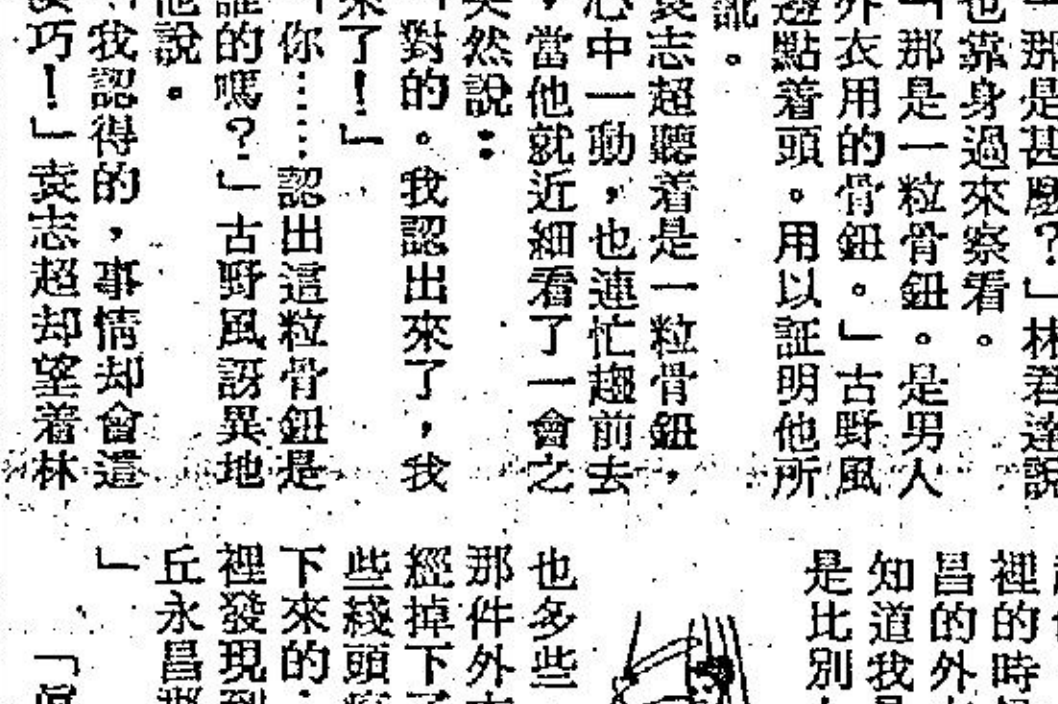 那是甚麼?」林君達說
也靠身過來察看。
「那是一粒骨鈕。是男人
外衣用的骨鈕。」古野風
邊點着頭。用以証明他所
說。
袁志超聽着是一粒骨鈕,
心中一動,也連忙趨前去
,當他就近細看了一會之
突然說:
「對的。我認出來了,我
來了!」
「你……認出這粒骨鈕是
誰的嗎?」古野風訝異地
他說。
我認得的,事情却會這
巧!」袁志超却望着林
裡的時
昌的外
知道我
是比別
也多些
那件外
經掉下了
些綫頭
下來的
裡發現到
丘永昌那
」
「